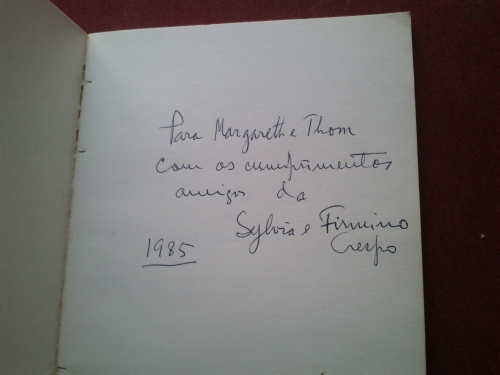 Para Margareth e Thom
com os cumprimentos
amigos da
Sylvia e Firmino
Crespo
1985